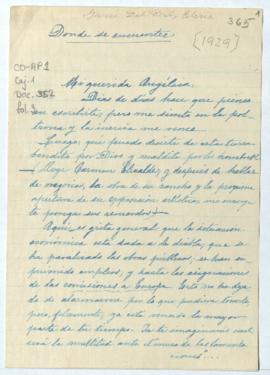 365
Donde se encuentre
[1929]
CO-AP1
Caj. 1
Doc. 352
fol. 1
Mi querida Angélica:
Días de días hace que pienso
en escribirte; pero me siento en la pol-
trona y la inercia me vence.
Luego, que puedo decirte de esta tierra
bendita por Dios y maldita por los hombres?
(Llega Carmen Elcalde, y después de hablar
de negocios, la obra de su rancho y la próxima
apertura de su exposición artística, me encarga
te ponga sus recuerdos)
Aquí, es grita general que la situación
económica está dada a la diabla, que se
ha paralizado las obras públicas, se han su-
primido empleos, y hasta las asignaciones
de las comisiones a Europa. Esto no ha deja-
do de alarmarme por lo que pudiera tocarte,
pero, felizmente, ya está usada la mayor
parte de tu tiempo. Tú te imaginarás cual
será la multitud ante el muro de las lamenta
ciones"...